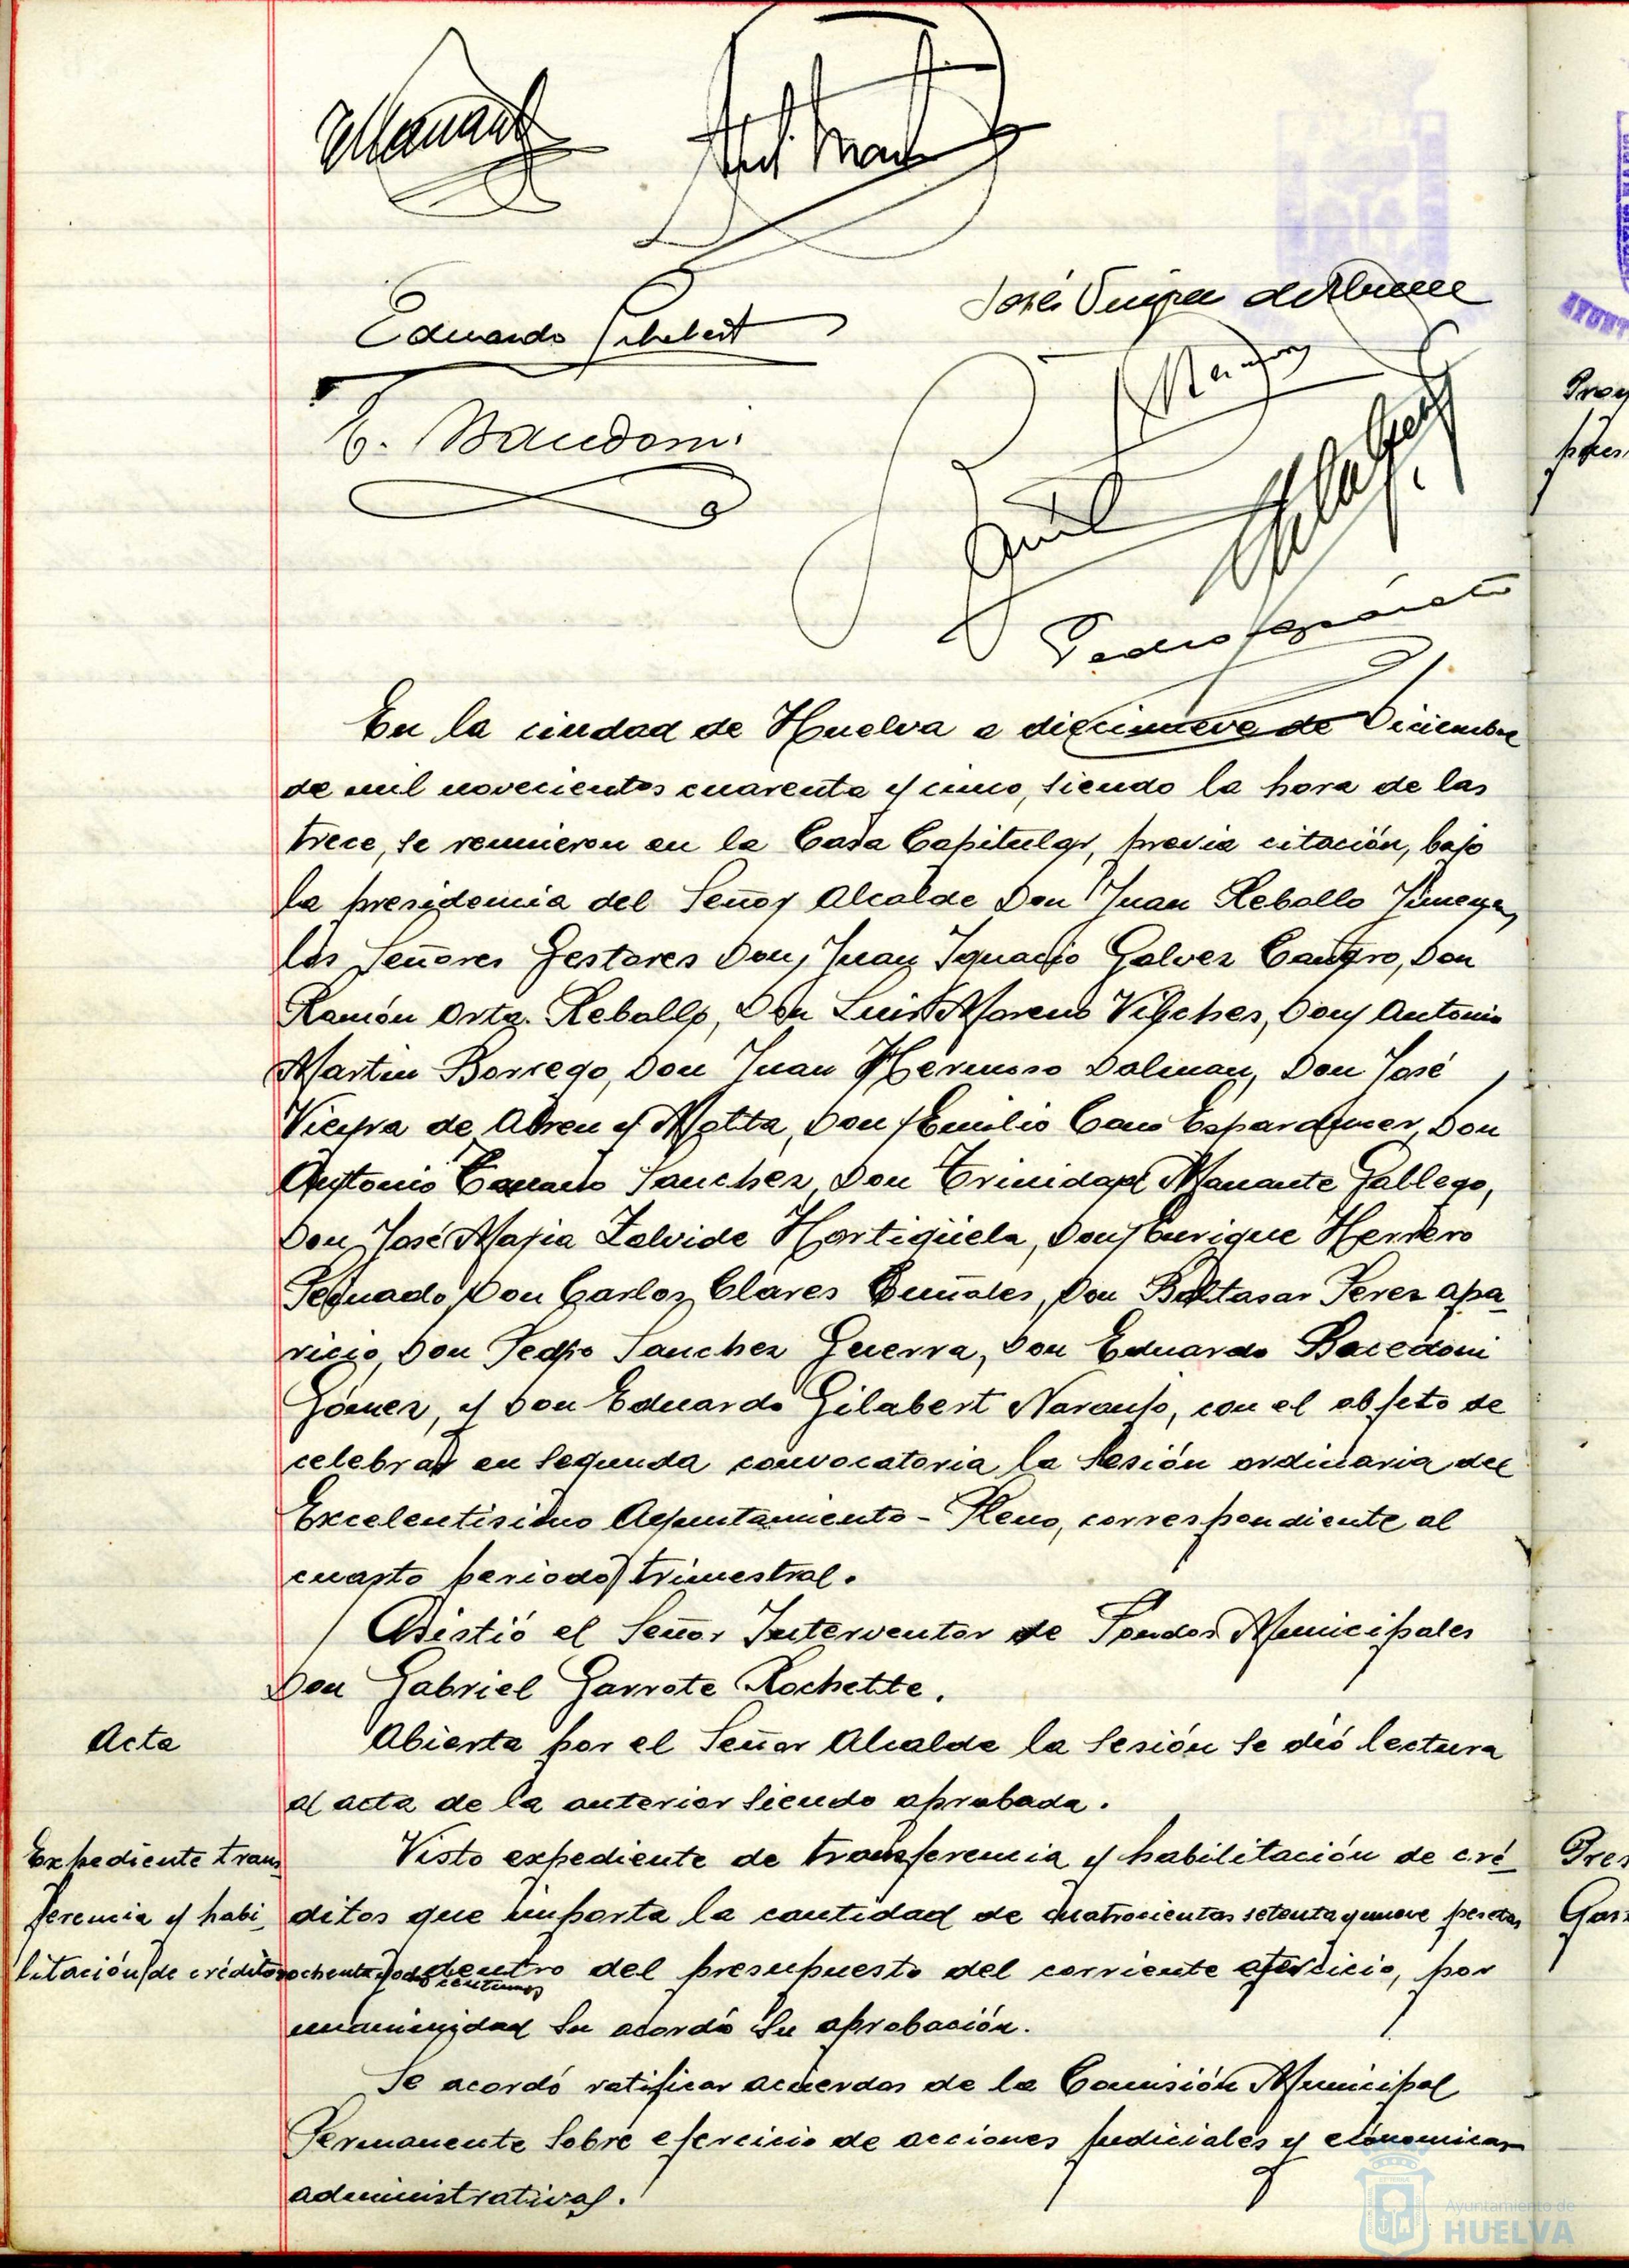 Eduardo Gilabert
E. Bacedoni
En la ciudad de Huelva a diecinueve de Diciembre
de mil novecientos cuarenta y cinco, siendo la hora de las
trece, se reunieron en la Casa Capitular, previa citación, bajo
la presidencia del Señor Alcalde Don Juan Rebollo Jimenez,
los Señores Gestores Don Juan Ignacio Galvez Cantero, Don
Ramón Orta Rebollo, Don Luis Moreno Vilches, Don Antonio
Martin Borrego, Don Juan Hermoso Dolman, Don José
Vieyra de Abreu y Motta, Don Emilio Cano Esparducer, Don
Antonio Sanchez, Don Trinidad Manante Gallego,
Don José Maria Zalvide Hortigüela, Don Enrique Herrero
Don Carlos Clares Don Baltasar Perez Apa-
ricio, Don Pedro Sanchez Guerra, Don Eduardo Bacedoni
Gómez, y Don Eduardo Gilabert Naranjo, con el objeto de
celebrar en segunda convocatoria la sesión ordinaria del
Excelentisimo Ayuntamiento-Pleno, correspondiente al
cuarto periodo trimestral.
Asistió el Señor Interventor de Fondos Municipales
Don Gabriel Garrote Rochette.
Acta
Abierta por el Señor Alcalde la sesión se dió lectura
al acta de la anterior siendo aprobada.
Expediente trans
ferencia y habi
litación de créditos
Visto expediente de transferencia y habilitación de cré-
ditos que importa la cantidad de cuatrocientas setenta y nueve pesetas
ochenta y dos centimos dentro del presupuesto del corriente ejercicio, por
unanimidad su acordó su aprobación.
Se acordó ratificar acuerdos de la Comisión Municipal
Permanente sobre ejercicio de acciones judiciales y económicas
administrativas.
Ayuntamiento de
HUELVA